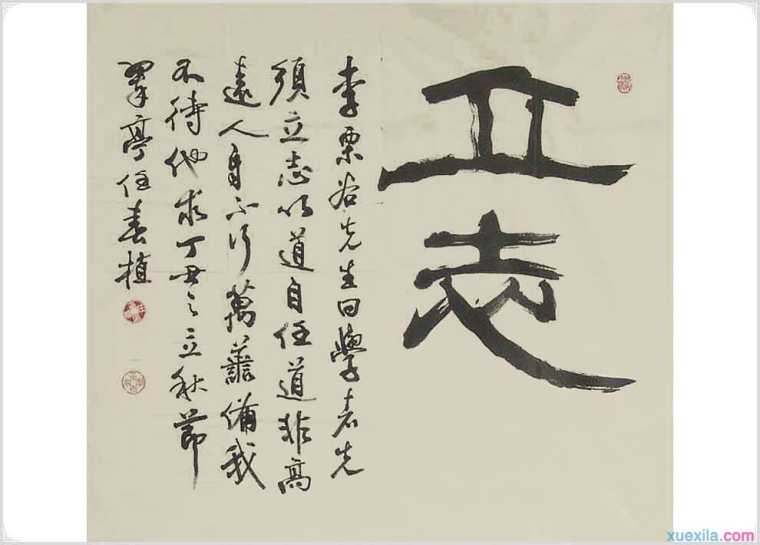 立志
李栗谷先生曰學者先
須立志以道自任道非高
遠人自不行萬善備我
不待他求丁丑之立秋節
亭任春植
xuexila.com